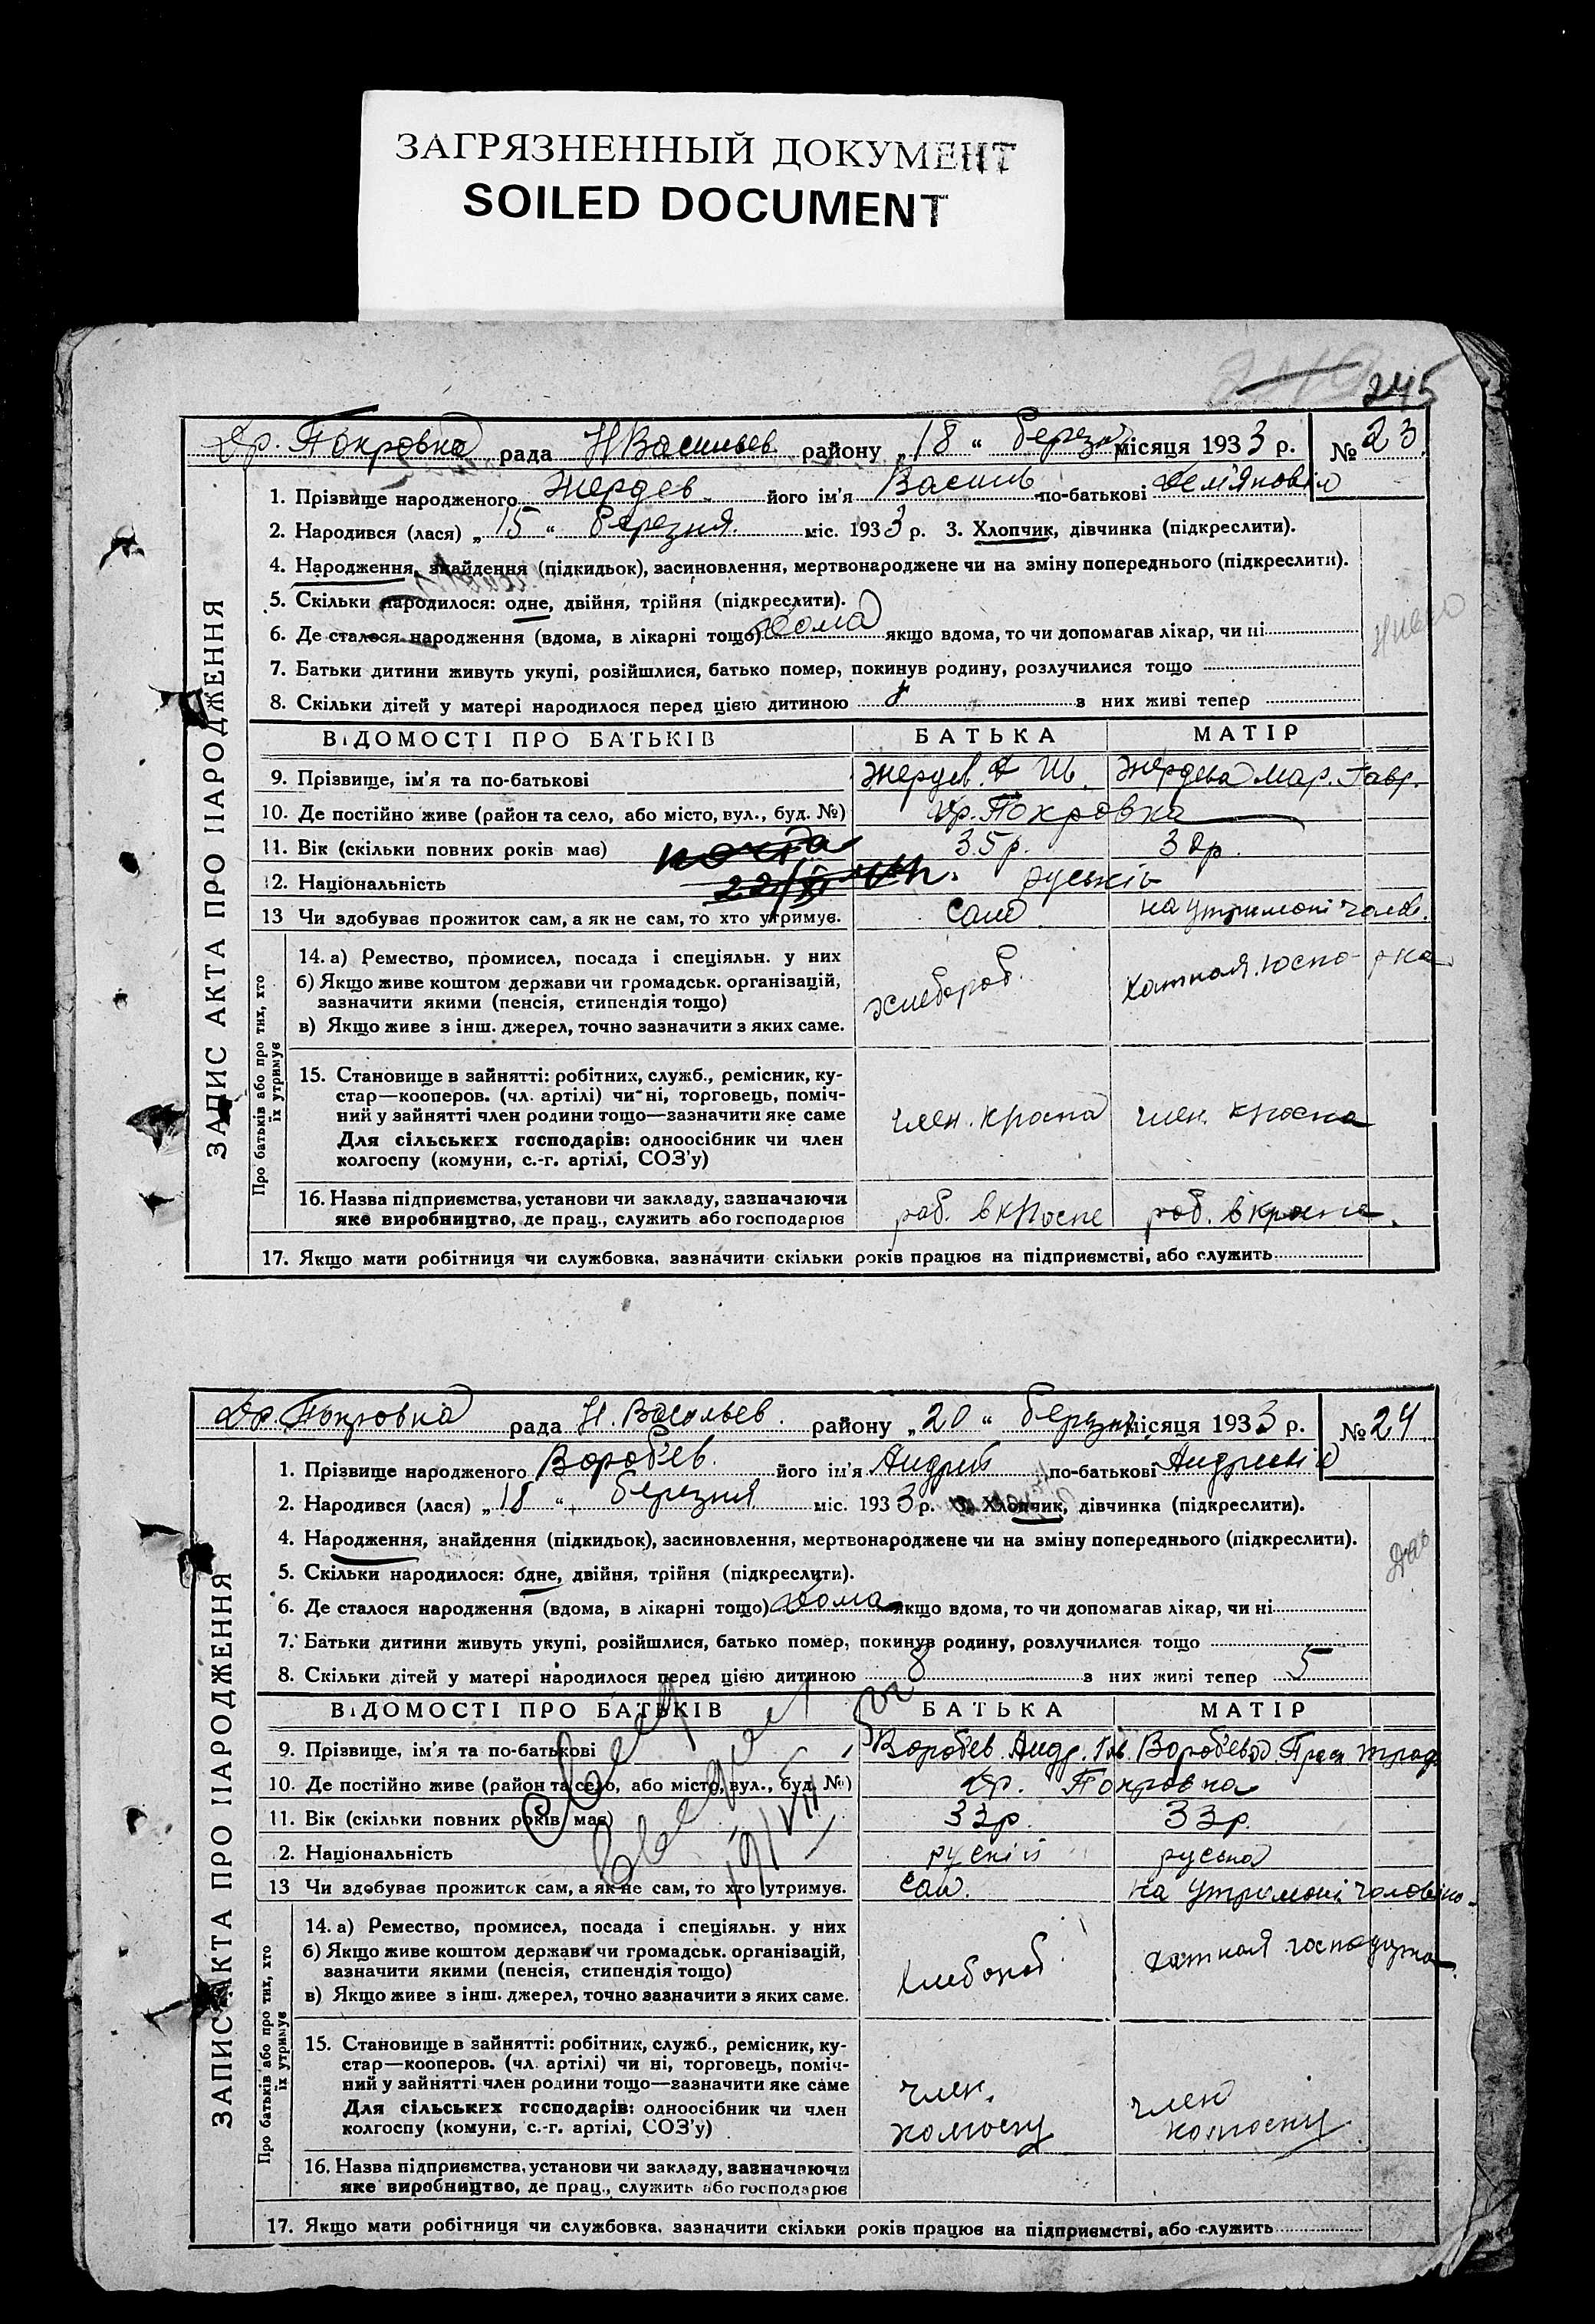 ЗАГРЯЗНЕННЫЙ ДОКУМЕНТ
SOILED DOCUMENT
245
Др. Покровка рада Н Васильев. району „18“ березня місяця 1933 р. № 23
ЗАПИС АКТА ПРО НАРОДЖЕННЯ
1. Прізвище народженого Жердев його ім'я Василь по-батькові Дем'янович
2. Народився (лася) „15“ березня міс. 1933 р. 3. Хлопчик, дівчинка (підкреслити).
4. Народження, знайдення (підкидьок), засиновлення, мертвонароджене чи на зміну попереднього (підкреслити).
5. Скільки народилося: одне, двійня, трійня (підкреслити).
6. Де сталося народження (вдома, в лікарні тощо) дома якщо вдома, то чи допомагав лікар, чи ні
7. Батьки дитини живуть укупі, розійшлися, батько помер, покинув родину, розлучилися тощо
8. Скільки дітей у матері народилося перед цією дитиною з них живі тепер
ВІДОМОСТІ ПРО БАТЬКІВ БАТЬКА МАТІР
9. Прізвище, ім'я та по-батькові Жердев Жердева Мар. Гавр.
10. Де постійно живе (район та село, або місто, вул., буд. №) др. Покровка
11. Вік (скільки повних років має) 35 р. 32 р.
12. Національність руській
13 Чи здобуває прожиток сам, а як не сам, то хто утримує. сам на утримані чолов.
Про батьків або про тих, хто їх утримує
14. а) Ремество, промисел, посада і спеціяльн. у них
б) Якщо живе коштом держави чи громадськ. організацій,
зазначити якими (пенсія, стипендія тощо) хлебороб
в) Якщо живе з інш. джерел, точно зазначити з яких саме.
15. Становище в зайнятті: робітник, служб., ремісник, ку-
стар—кооперов. (чл. артілі) чи ні, торговець, поміч-
ний у зайнятті член родини тощо—зазначити яке саме член. член.
Для сільських господарів: одноосібник чи член
колгоспу (комуни, с.-г. артілі, СОЗ'у)
16. Назва підприємства, установи чи закладу, зазначаючи
яке виробництво, де прац., служить або господарює роб. в роб. в
17. Якщо мати робітниця чи службовка, зазначити скільки років працює на підприємстві, або служить
Др. Покровка рада Н. Васильев. району „20“ березня місяця 1933 р. № 24
ЗАПИС АКТА ПРО НАРОДЖЕННЯ
1. Прізвище народженого Воробъев. його ім'я Андрій по-батькові Андриевіч
2. Народився (лася) „18“ березня міс. 1933 р. 3. Хлопчик, дівчинка (підкреслити).
4. Народження, знайдення (підкидьок), засиновлення, мертвонароджене чи на зміну попереднього (підкреслити).
5. Скільки народилося: одне, двійня, трійня (підкреслити).
6. Де сталося народження (вдома, в лікарні тощо) дома якщо вдома, то чи допомагав лікар, чи ні
7. Батьки дитини живуть укупі, розійшлися, батько помер, покинув родину, розлучилися тощо
8. Скільки дітей у матері народилося перед цією дитиною 8 з них живі тепер 5
ВІДОМОСТІ ПРО БАТЬКІВ БАТЬКА МАТІР
9. Прізвище, ім'я та по-батькові Воробъев Андр. Воробъева
10. Де постійно живе (район та село, або місто, вул., буд. №) др. Покровка
11. Вік (скільки повних років має) 33 р. 33 р.
2. Національність рускій руська
13 Чи здобуває прожиток сам, а як не сам, то хто утримує. сам. на утримані
Про батьків або про тих, хто їх утримує
14. а) Ремество, промисел, посада і спеціяльн. у них
б) Якщо живе коштом держави чи громадськ. організацій,
зазначити якими (пенсія, стипендія тощо) хлебороб
в) Якщо живе з інш. джерел, точно зазначити з яких саме.
15. Становище в зайнятті: робітник, служб., ремісник, ку-
стар—кооперов. (чл. артілі) чи ні, торговець, поміч-
ний у зайнятті член родини тощо—зазначити яке саме член. член
Для сільських господарів: одноосібник чи член
колгоспу (комуни, с.-г. артілі, СОЗ'у) колгоспу колгоспу
16. Назва підприємства, установи чи закладу, зазначаючи
яке виробництво, де прац., служить або господарює
17. Якщо мати робітниця чи службовка, зазначити скільки років працює на підприємстві, або служить